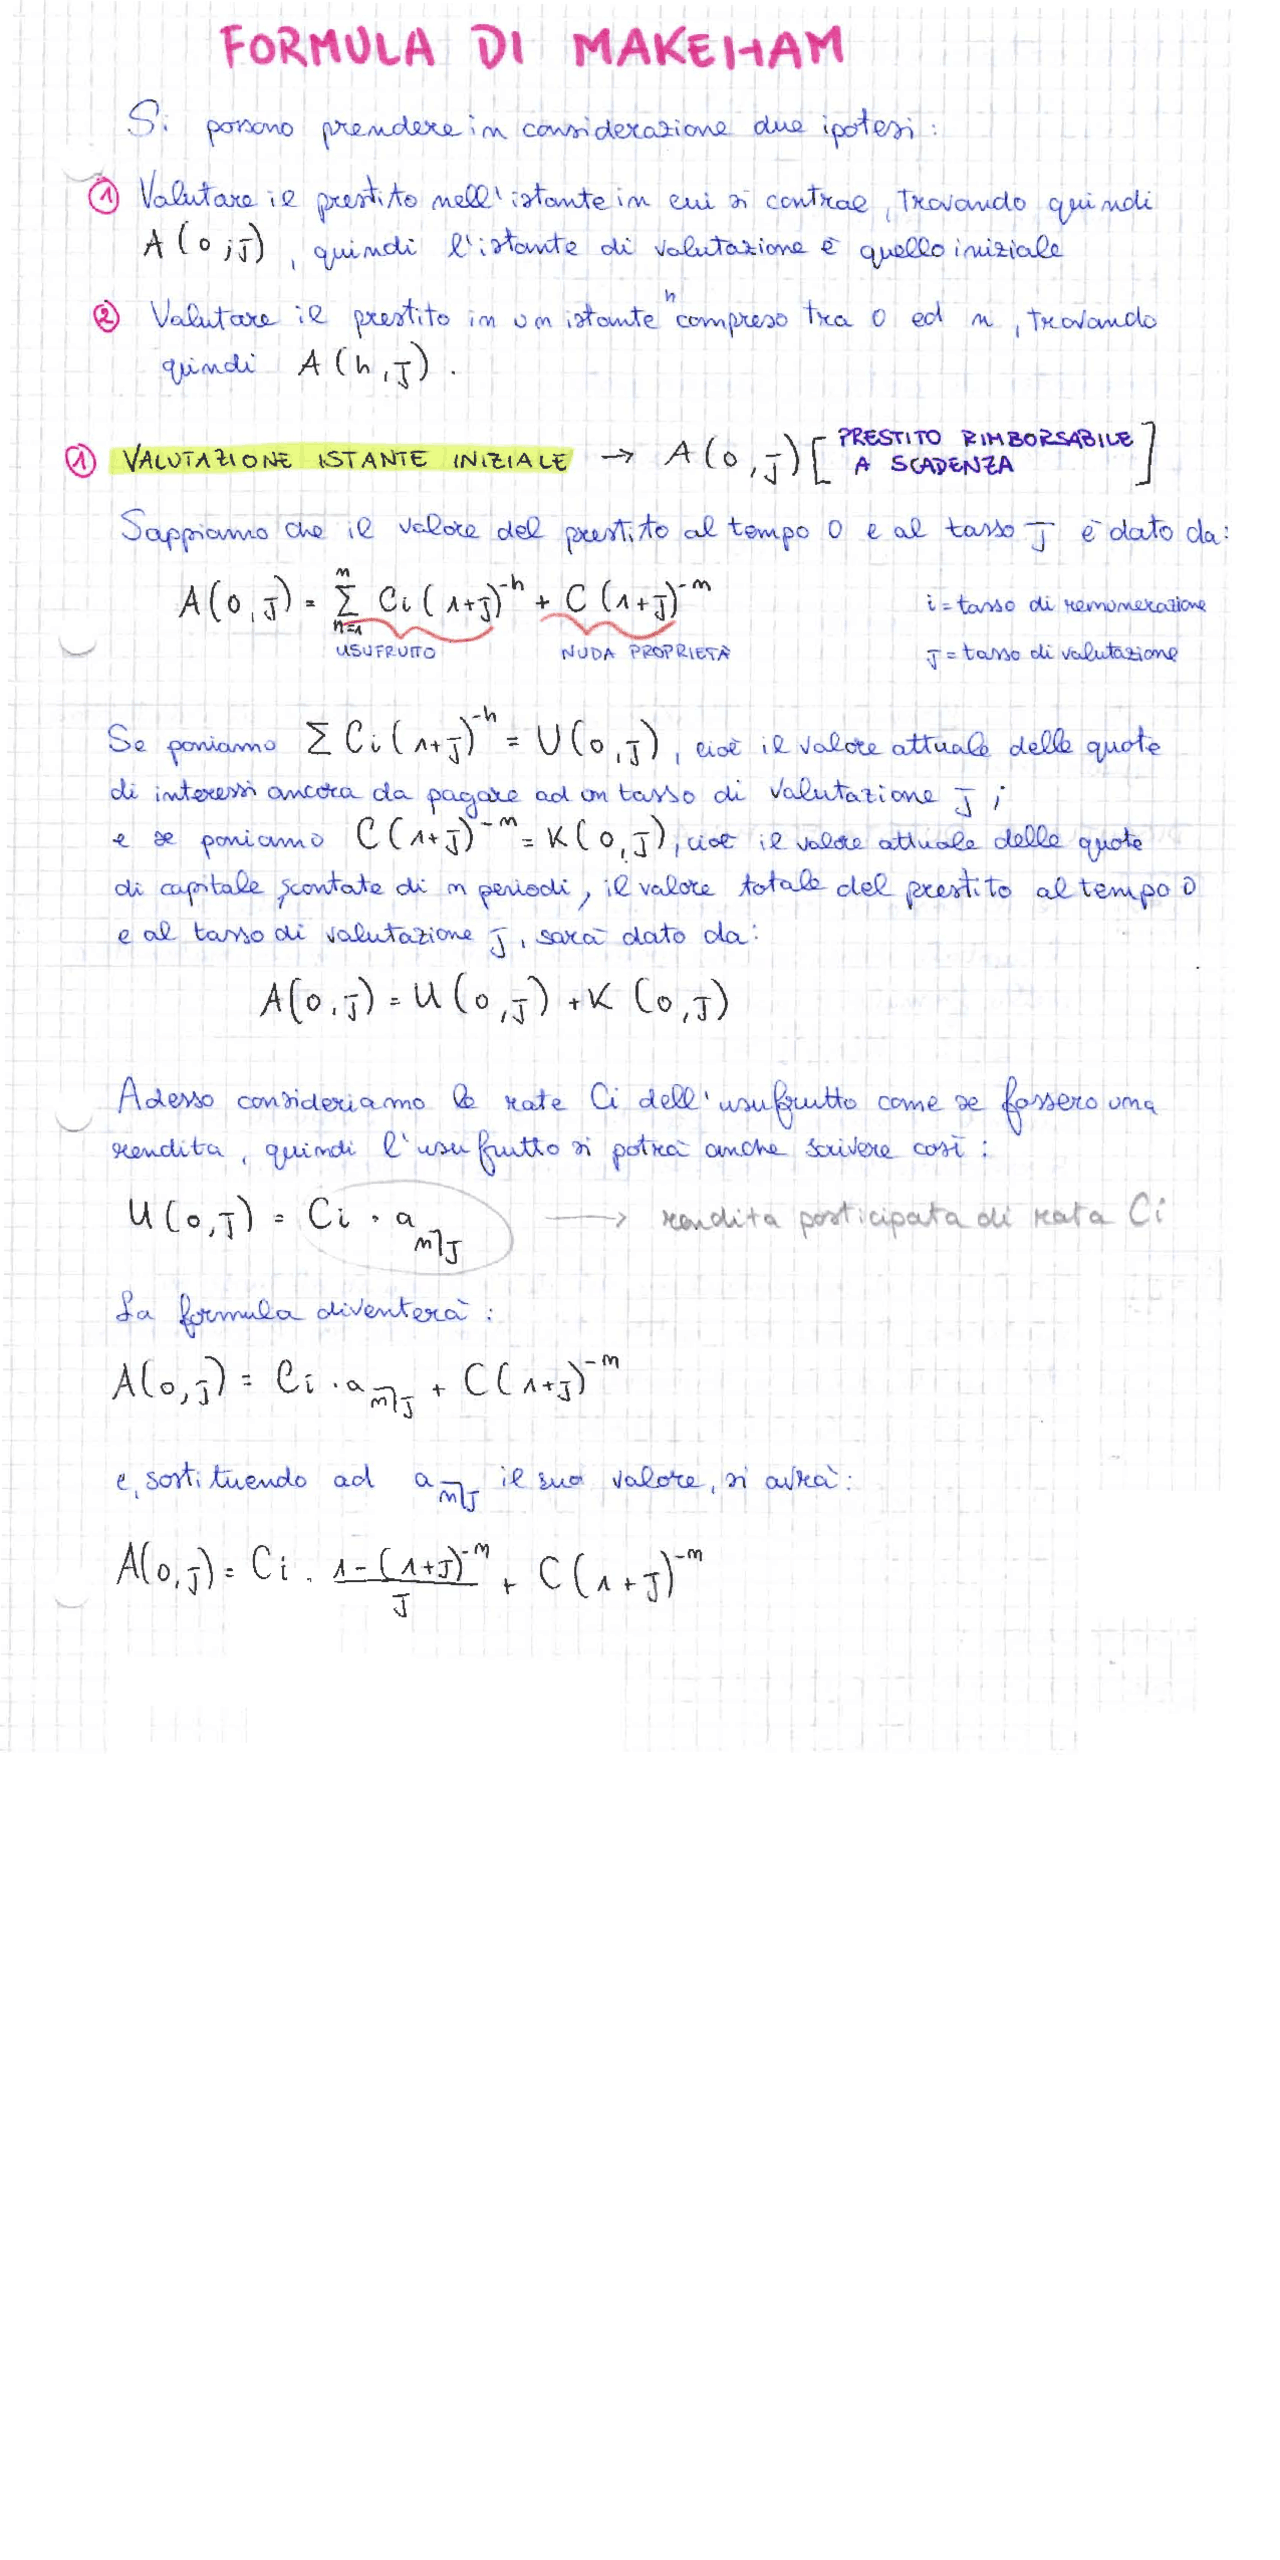 FORMULA DI MAKEHAM
Si possono prendere in considerazione due ipotesi:
① Valutare il prestito nell'istante in cui si contrae, trovando quindi
A(0;J), quindi l'istante di valutazione è quello iniziale
h
② Valutare il prestito in un istante compreso tra 0 ed n, trovando
quindi A(h,J).
① VALUTAZIONE ISTANTE INIZIALE → A(0,J) [PRESTITO RIMBORSABILE
A SCADENZA]
Sappiamo che il valore del prestito al tempo 0 e al tasso J è dato da:
A(0,J) = Σ Ci(1+J)^-h + C(1+J)^-n
n
h=1
i = tasso di remunerazione
USUFRUTTO NUDA PROPRIETÀ
J = tasso di valutazione
Se poniamo Σ Ci(1+J)^-h = U(0,J), cioè il valore attuale delle quote
di interessi ancora da pagare ad un tasso di valutazione J;
e se poniamo C(1+J)^-n = K(0,J), cioè il valore attuale delle quote
di capitale scontate di n periodi, il valore totale del prestito al tempo 0
e al tasso di valutazione J, sarà dato da:
A(0,J) = U(0,J) + K(0,J)
Adesso consideriamo le rate Ci dell'usufrutto come se fossero una
rendita, quindi l'usufrutto si potrà anche scrivere così:
U(0,J) = Ci · a n⌉J → rendita posticipata di rata Ci
La formula diventerà:
A(0,J) = Ci · a n⌉J + C(1+J)^-n
e, sostituendo ad a n⌉J il suo valore, si avrà:
A(0,J) = Ci · 1-(1+J)^-n / J + C(1+J)^-n